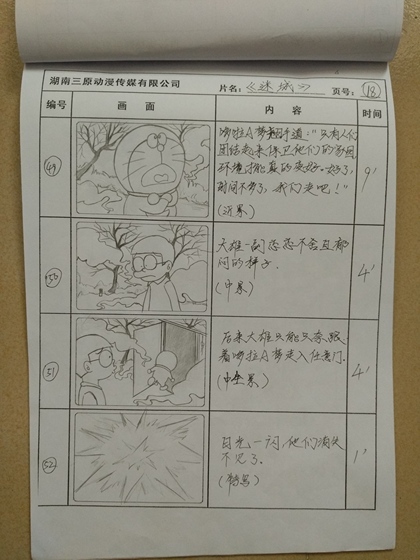 湖南三原动漫传媒有限公司
片名：《迷城》
页号：18
编号
画面
内容
时间
49
哆拉A梦翻手道："只有人们
团结起来保卫他们的家园，
环境才能真的变好。好了，
时间不多了，我们走吧！"
(近景)
9'
50
大雄一副恋恋不舍且郁
闷的样子.
(中景)
4'
51
后来大雄只能只奈跟
着哆拉A梦走入任意门.
(中全景)
4'
52
白光一闪,他们消失
不见了.
(特写)
1'